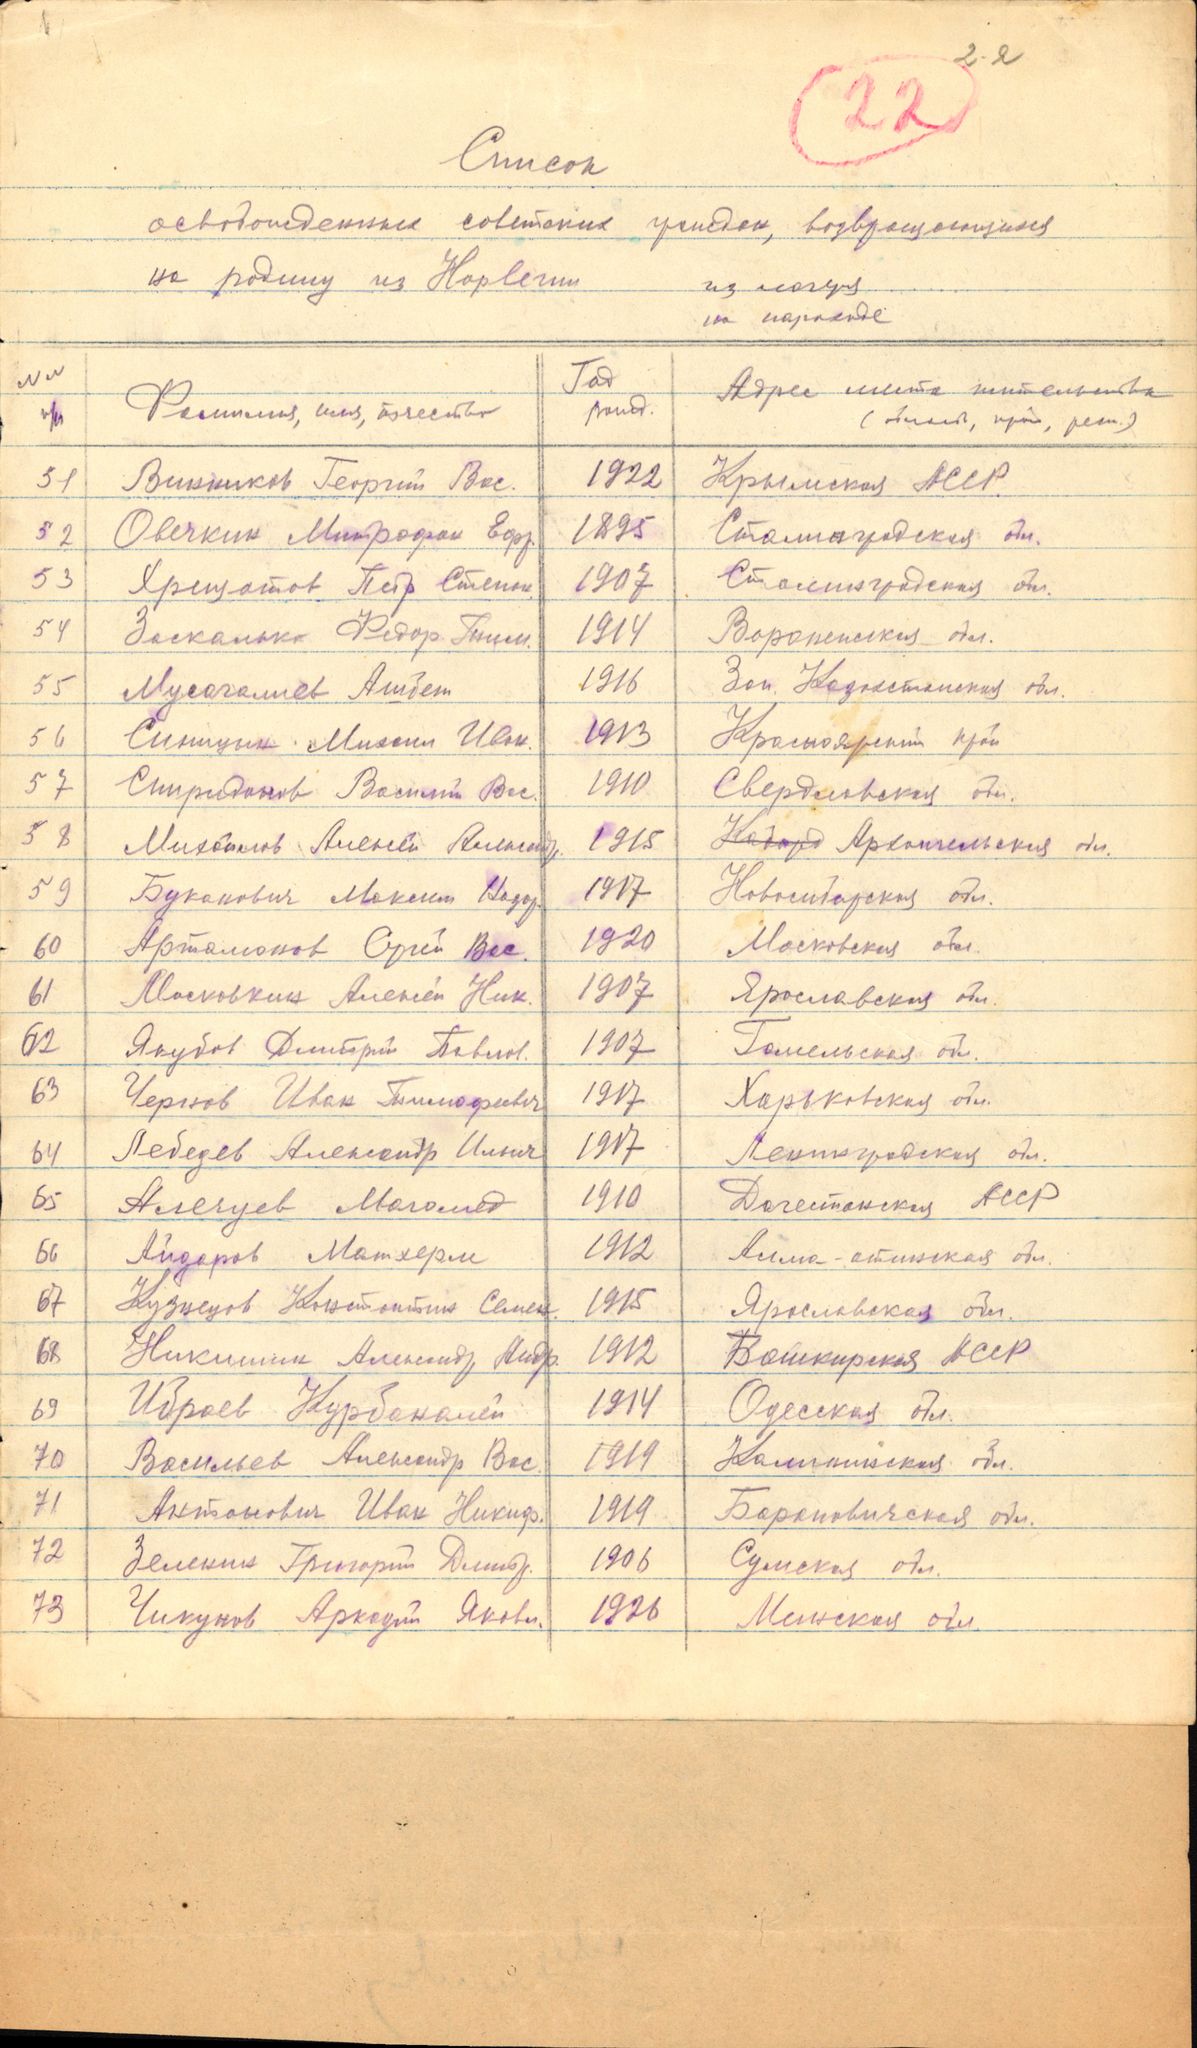 2-я
22
Список
освобожденных советских граждан, возвращающихся
на родину из Норвегии из лагеря
на пароходе
№ №
п/п Фамилия, имя, отчество Год
рожд. Адрес места жительства
(область, край, респ.)
51 Винников Георгий Вас. 1922 Крымская АССР.
52 Овечкин Митрофан Ефр. 1895 Сталинградская обл.
53 Хрещатов Петр Степан. 1907 Сталинградская обл.
54 Заскалько Федор Тим. 1914 Воронежская обл.
55 Мусагалиев 1916 Зап. Казахстанская обл.
56 Синицын Михаил Иван. 1913 Красноярский край
57 Спиридонов Василий Вас. 1910 Свердловская обл.
58 Михайлов Алексей Александр. 1915 Архангельская обл.
59 Буканович Максим 1917 Новосибирская обл.
60 Артамонов Сергей Вас. 1920 Московская обл.
61 Московкин Алексей Ник. 1907 Ярославская обл.
62 Якубов Дмитрий Павлов. 1907 Гомельская обл.
63 Чернов Иван Тимофеевич 1917 Харьковская обл.
64 Лебедев Александр Ильич 1917 Ленинградская обл.
65 Магомед 1910 Дагестанская АССР
66 Айдаров 1912 Алма-атинская обл.
67 Кузнецов Константин Семен. 1915 Ярославская обл.
68 Никишин Александр Андр. 1912 Башкирская АССР
69 Ибраев Курбаналей 1914 Одесская обл.
70 Васильев Александр Вас. 1919 Калининская обл.
71 Антонович Иван Никиф. 1919 Барановичская обл.
72 Зеленин Григорий Дмитр. 1906 Сумская обл.
73 Чикунов Аркадий Яковл. 1926 Минская обл.